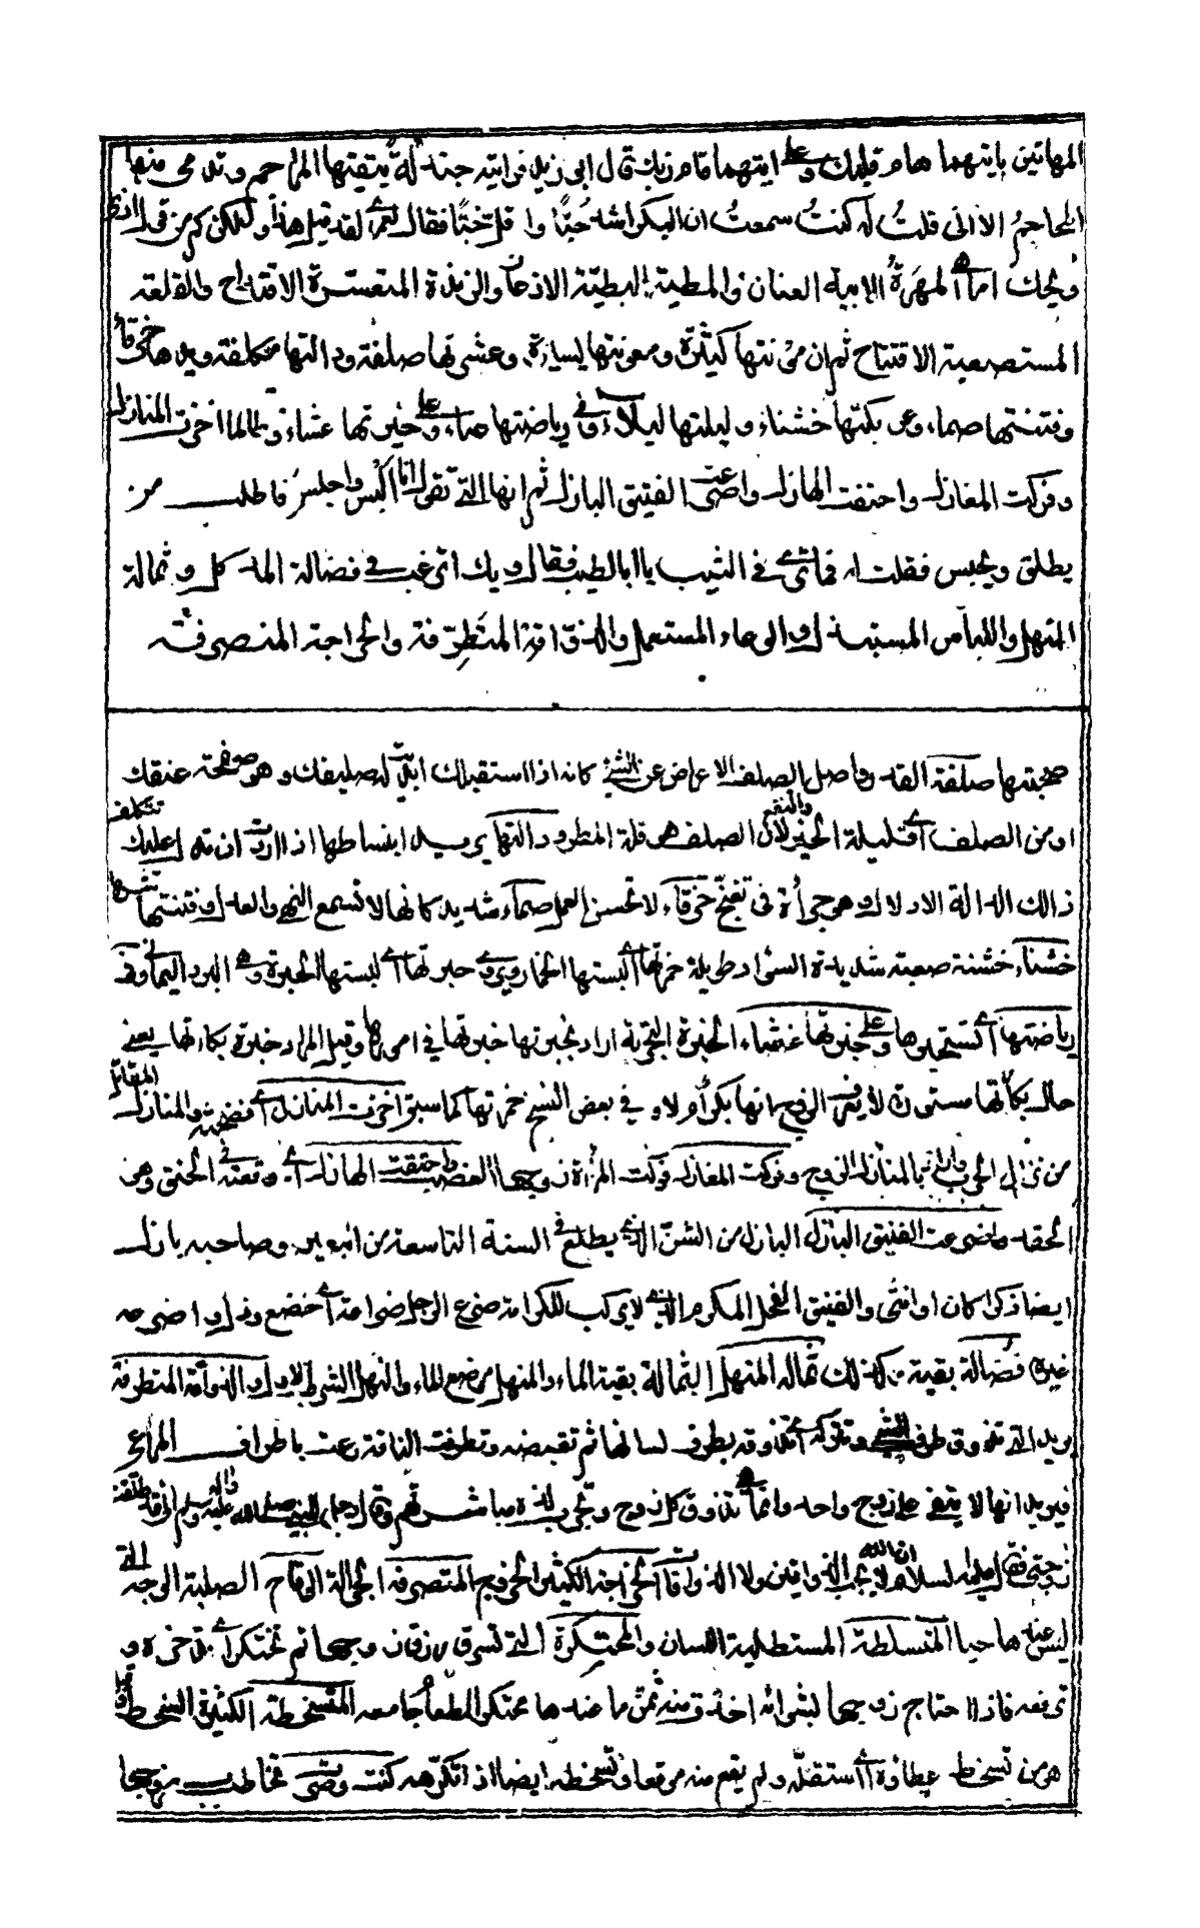 المهاتين بايتهما هام قلبك وعلى ايتهما قام زبك قال ابو زيد فرايته جندلة يتقيها المراجم وتدمى منها
المحاجم الا انى قلت له كنت سمعت ان البكر اشد حبا واقل خبا فقال لعمرى لقد قيل هذا ولكن كم من قول اذى
ويحك اما هى المهرة الابية العنان والمطية البطيئة الاذعان والزندة المتعسرة الاقتداح والقلعة
المستصعبة الافتتاح ثم ان مؤنتها كثيرة ومعونتها يسيرة وعشرتها صلفة ودالتها مكلفة ويدها خرقاء
وفتنتها صماء وعريكتها خشناء وليلتها ليلاء وفى رياضتها عناء وعلى خبرتها غشاء وطالما اخزت المنازل
وفركت المغازل واحنقت الهازل واضرعت الفنيق البازل ثم انها التى تقول انا البس واجلس فاطلب من
يطلق ويحبس فقلت له فما ترى فى الثيب يا ابا الطيب فقال ويك اترغب فى فضالة الماكل وثمالة
المنهل واللباس المستبذل والوعاء المستعمل والذواقة المتطرفة والخراجة المتصرفة
صحبتها صلفة القد واصل الصلف الاعراض عن الشئ كانه اذا استقبلك ابدى له صليفك وهو صفحة عنقك
او من الصلف اى قليلة الخير لان الصلف هو قلة المطر ودالتها يريد انبساطها اذا اردت ان تدل عليك تتكلف
ذالك الدالة الادلال وهو جرأة فى تغنج خرقاء لا تحسن العمل صماء شديد كانها لا تسمع النهى والعذل وفتنتها شرها
خشناء خشنة صعبة شديدة السواد طويلة خمرتها اى البستها الخمار ويروى حبرتها اى البستها الحبرة وهى البرد اليمانى وفى
رياضتها اى تستحمرها وعلى خبرتها غشاء الخبرة التجربة اراد بخبرتها خبرتها فى امورها وقيل المراد خبرة بكارتها يعنى
حال بكارتها مستورة لا يعرف الزوج انها بكر ام لا وفى بعض النسخ خمرتها كما سبق اخزت المنازل اى فضحته والمنازل المقاتل
من نزال الحرب واراد بالمنازل الزوج وفركت المغازل فركت المرأة زوجها ابغضته واحنقت الهازل اى وقعته فى الحنق وهو
الحقد واضرعت الفنيق البازل البازل من السن الذى يطلع فى السنة التاسعة من البعير وصاحبه بازل
ايضا ذكرا كان او انثى والفنيق الفحل المكرم الذى لا يركب للكرامة ضرع الرجل ضراعة اى خضع وذل واضرعه
غيره فضالة بقية من كذلك ثمالة المنهل الثمالة بقية الماء والمنهل موضع الماء والنهل الشرب الاول والذواقة المتطرفة
يريد التى تذوق طرف الشئ وتتركه اى تذوقه بطرف لسانها ثم تقبضه وتطرفت الناقة رعت باطراف المراعى
فيريد انها لا تبقى على زوج واحد وانما تذوق كل زوج وتجرب لذة مباشرتهم وقال رجل للنبى صلى الله عليه واله وسلم انى قد طلقت
زوجتى فقال عليه السلام ان الله لا يحب الذواقين ولا الذواقات الخراجة الكثيرة الخروج المتصرفة الجوالة الوقاح الصلبة الوجه التى
ليس عندها حيا المتسلطة المستطيلة اللسان والمحتكرة التى تسرق رزق زوجها ثم تحتكر اى تدخره و
ترفعه فاذا احتاج زوجها لشرائه اخذوا منه ثمن ما عندها محتكر الطعام جامعه المتسخطة الكثيرة السخط
هو من تسخط عطاؤه اى استقله ولم يقع منه موقعا وتسخطه ايضا اذا تكرهه كنت وضئ تخاطب زوجها